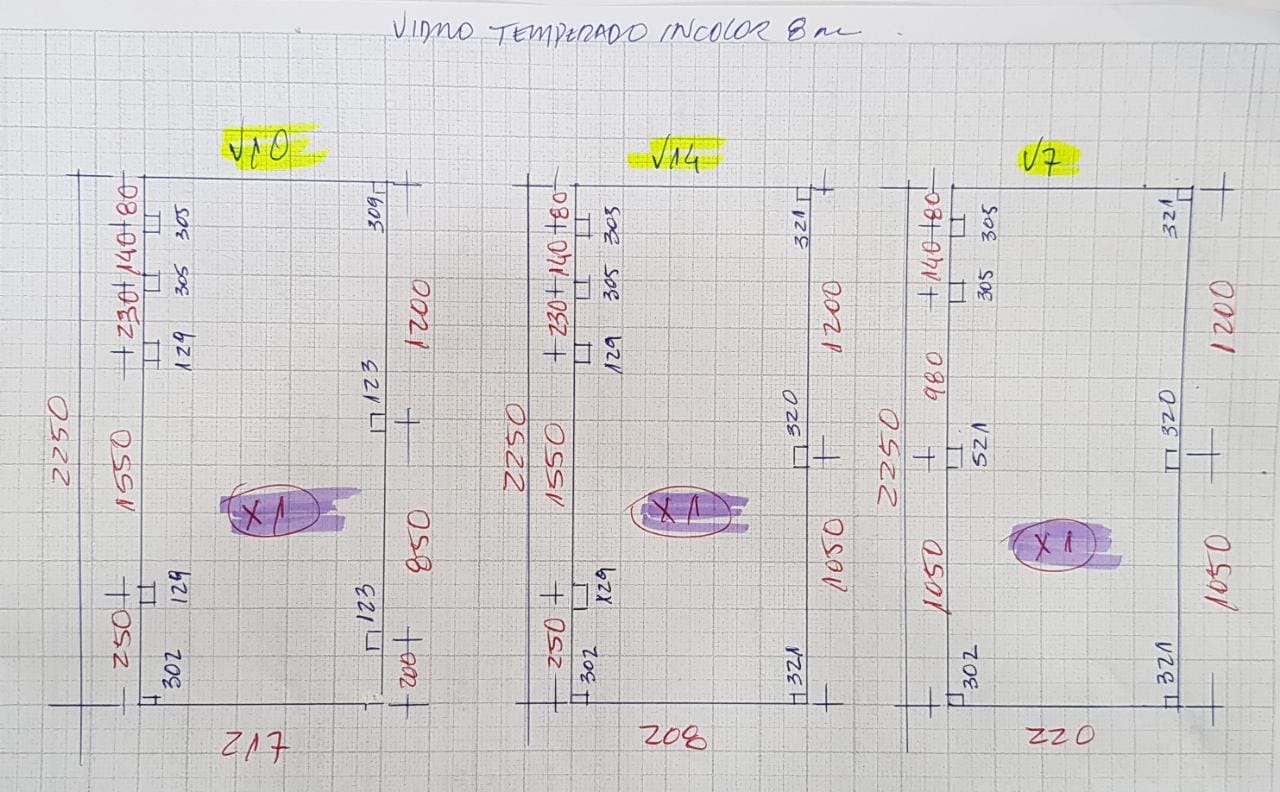 VIDRO TEMPERADO INCOLOR 8m
V10
2250
230+140+80
1550
250
305
305
129
129
302
309
123
123
1200
850
200
X1
712
V14
2250
230+140+80
1550
250
305
305
129
X29
302
321
320
321
1200
1050
X1
802
V7
2250
140+80
980
1050
305
305
521
302
321
320
321
1200
1050
X1
220